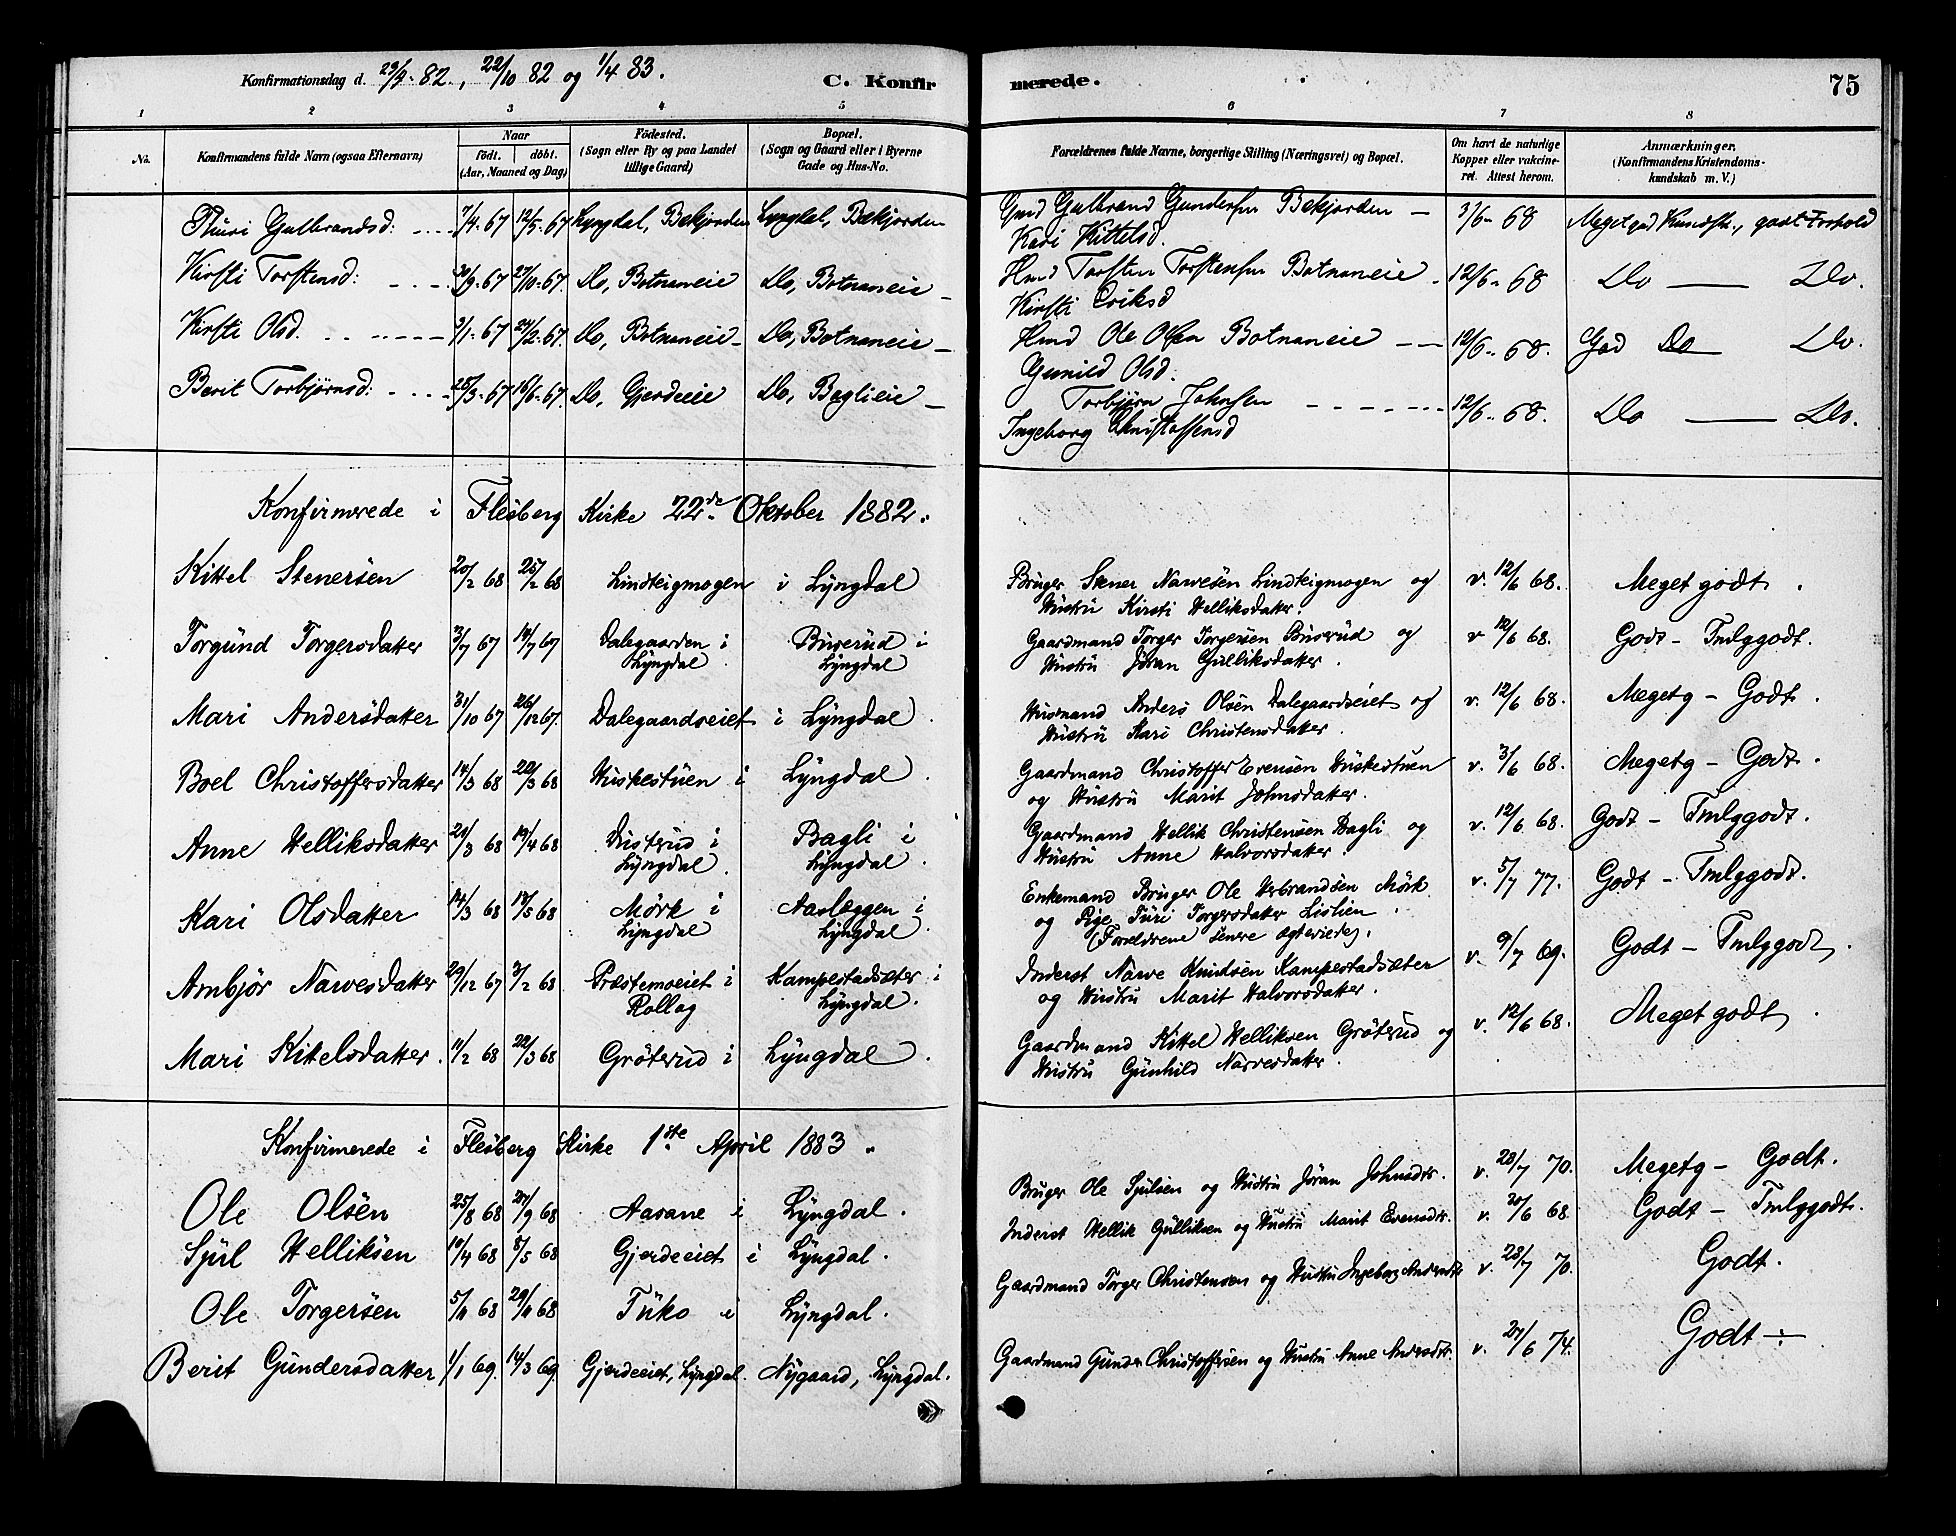 Konfirmationsdag d. 29/9-82., 22/10 82 og 1/4 83.
C. Konfir
merede.
75
1 2 3 4 5 6 7 8
No.
Konfirmandens fulde Navn (ogsaa Efternavn)
Naar
födt. döbt.
(Aar, Maaned og Dag)
Födested.
(Sogn eller By og paa Landet
tillige Gaard)
Bopæl.
(Sogn og Gaard eller i Byerne
Gade og Hus-No.
Forældrenes fulde Navne, borgerlige Stilling (Næringsvei) og Bopæl.
Om havt de naturlige
Kopper eller vakcine-
ret. Attest herom.
Anmærkninger.
(Konfirmandens Kristendoms-
kundskab m. V.)
Thuri Gulbrandsd: 7/4-67 12/5-67 Lyngdal, Bekjorden Lyngdal, Bekjorden Gmd Gulbrand Gundersen Bekjorden — 3/6-68 Meget god Kundsk., godt Forhold
Kari Kittelsd.
Kirsti Torstensd: 27/10-67. Do, Botnaneie Do, Botnaneie Hmd Torsten Torstensen Botnaneie 12/6-68 Do — Do.
Kirsti Eriksd
Kirsti Olsd. 24/2-67. Do, Botnaneie Do, Botnaneie Hmd Ole Olsen Botnaneie 12/6-68. God Do Do.
Gunild Olsd.
Berit Torbjørnsd: 25/3-67 16/6-67. Do, Gjerdeeie Do, Baglieie Torbjørn Johnsen 12/6-68. Do — Do.
Ingeborg Christoffersd
Konfirmerede i Flesberg Kirke 22de Oktober 1882.
Kittel Stenersen 20/2 68 25/2 68 Lindteigmogen i Lyngdal Bruger Stener Narvesen Lindteigmogen og v. 12/6 68. Meget godt.
Hustru Kirsti Helliksdatter.
Torgund Torgersdatter 3/7 67 14/7 67 Dalegaarden i Buverud i Gaardmand Torger Torgersen Buverud og v 12/6 68. Godt - Tmlggodt.
Lyngdal Lyngdal Hustru Jøran Gulliksdatter.
Mari Andersdatter 31/10 67 26/12 67. Dalegaardseiet i Lyngdal Husmand Anders Olsen Dalegaardseiet og v. 12/6 68. Megetg - Godt.
Hustru Kari Christensdatter.
Boel Christoffersdatter 14/3 68 22/3 68 Huskestuen i Lyngdal Gaardmand Christoffer Evensen Huskestuen v. 3/6 68. Megetg - Godt.
og Hustru Marit Johnsdatter.
Anne Helliksdatter 21/3 68 19/4 68 Disterud i Bagli i Gaardmand Hellik Christensen Bagli og v. 12/6 68. Godt - Tmlggodt.
Lyngdal Lyngdal Hustru Anne Halvorsdatter.
Kari Olsdatter 14/3 68 17/5 68 Mörk i Aaslæggen i Enkemand Bruger Ole Herbrandsen Mörk v. 5/7 77. Godt - Tmlggodt.
Lyngdal Lyngdal og Pige Turi Torgersdatter Lislien
(Forældrene senere ægteviede).
Ambjör Narvesdatter 29/12 67 3/2 68 Præstemoeiet i Kampestadsæter i Inderst Narve Knudsen Kampestadsæter v. 9/7 69. Godt - Tmlggodt.
Rollag Lyngdal. og Hustru Marit Halvorsdatter.
Mari Kittelsdatter. 11/2 68 22/3 68 Gröterud i Lyngdal. Gaardmand Kittel Helliksen Gröterud og v. 12/6 68. Meget godt
Hustru Gunhild Narvesdatter
Konfirmerede i Flesberg Kirke 1ste April 1883.
Ole Olsen 25/8 68 27/9 68 Aasane i Lyngdal. Bruger Ole Sjulsen og Hustru Jöran Johnsdtr. v. 28/7 70. Megetg - Godt.
Sjul Helliksen 10/4 68 8/5 68 Gjerdeeiet i Lyngdal. Inderst Hellik Gulliksen og Hustru Marit Evensdtr. v. 20/6 68. Godt - Tmlggodt.
Ole Torgersen 5/11 68 29/11 68 Tuko i Lyngdal. Gaardmand Torger Christensen og Hustru Ingeborg Andersdtr v. 28/7 70. Godt.
Berit Gundersdatter 1/1 69. 14/3 69. Gjerdeeiet, Lyngdal. Nygaard, Lyngdal. Gaardmand Gunder Christoffersen og Hustru Anne Andersdtr. v. 27/6 74. Godt